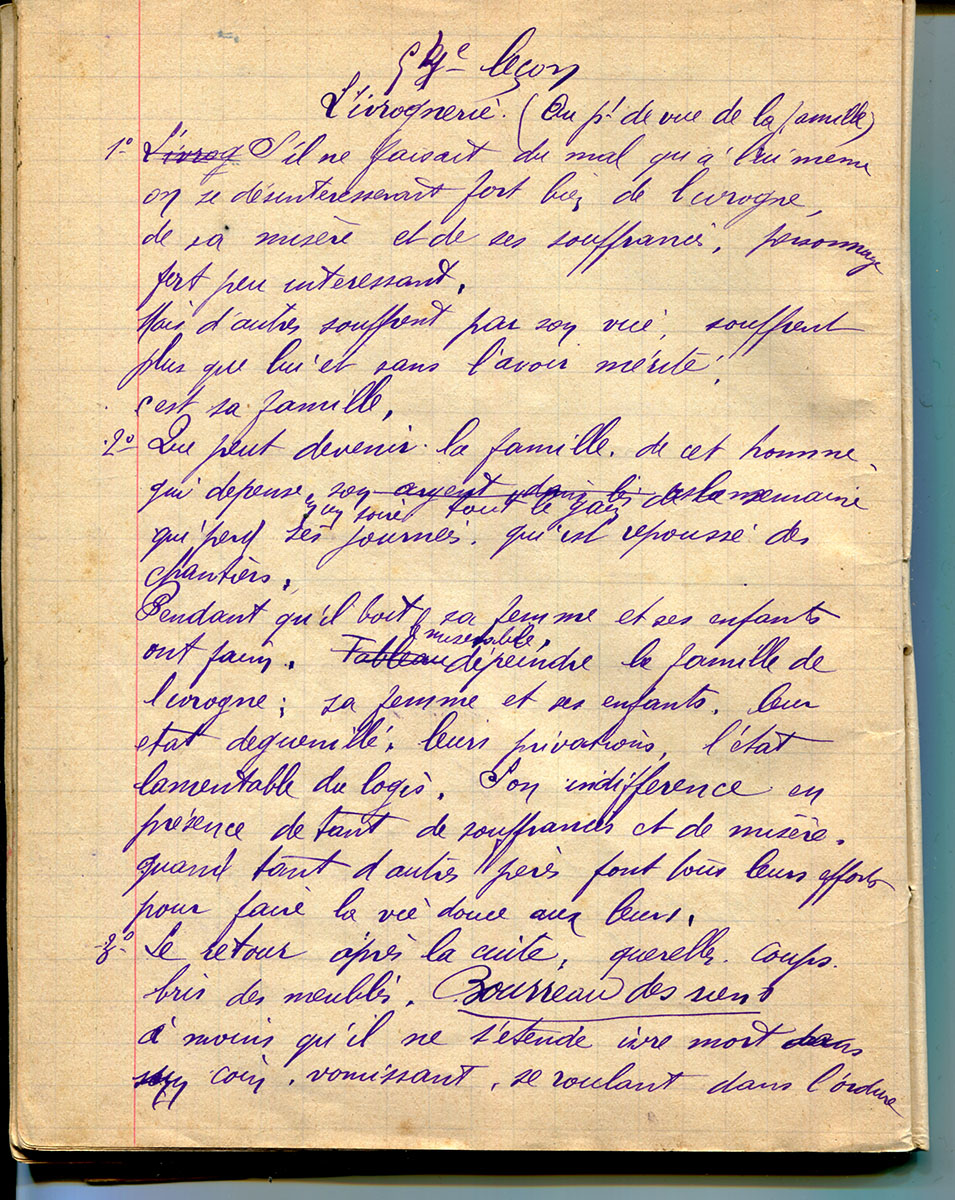 leçon
L'ivrognerie. (Au pt de vue de la famille)
1º L'ivrog S'il ne faisait du mal qu'à lui même
on se désintéresserait fort bien de l'ivrogne,
de sa misère et de ses souffrances, personnage
fort peu intéressant.
Mais d'autres souffrent par son vice, souffrent
plus que lui et sans l'avoir mérité,
c'est sa famille.
2º Que peut devenir la famille de cet homme
qui dépense son argent dans les la semaine
en un soir tout le gain de
qui perd ses journées, qui est repoussé des
chantiers.
Pendant qu'il boit, sa femme et ses enfants
misérable
ont faim. Tableau dépeindre la famille de
l'ivrogne; sa femme et ses enfants, leur
état deguenillé, leurs privations, l'état
lamentable du logis. Son indifférence en
présence de tant de souffrances et de misère.
quand tant d'autres pères font tous leurs efforts
pour faire la vie douce aux leurs.
3º Le retour après la cuite, querelles. coups.
bris des meubles. Bourreau des siens
à moins qu'il ne s'étende ivre mort dans
coin, vomissant, se roulant dans l'ordure